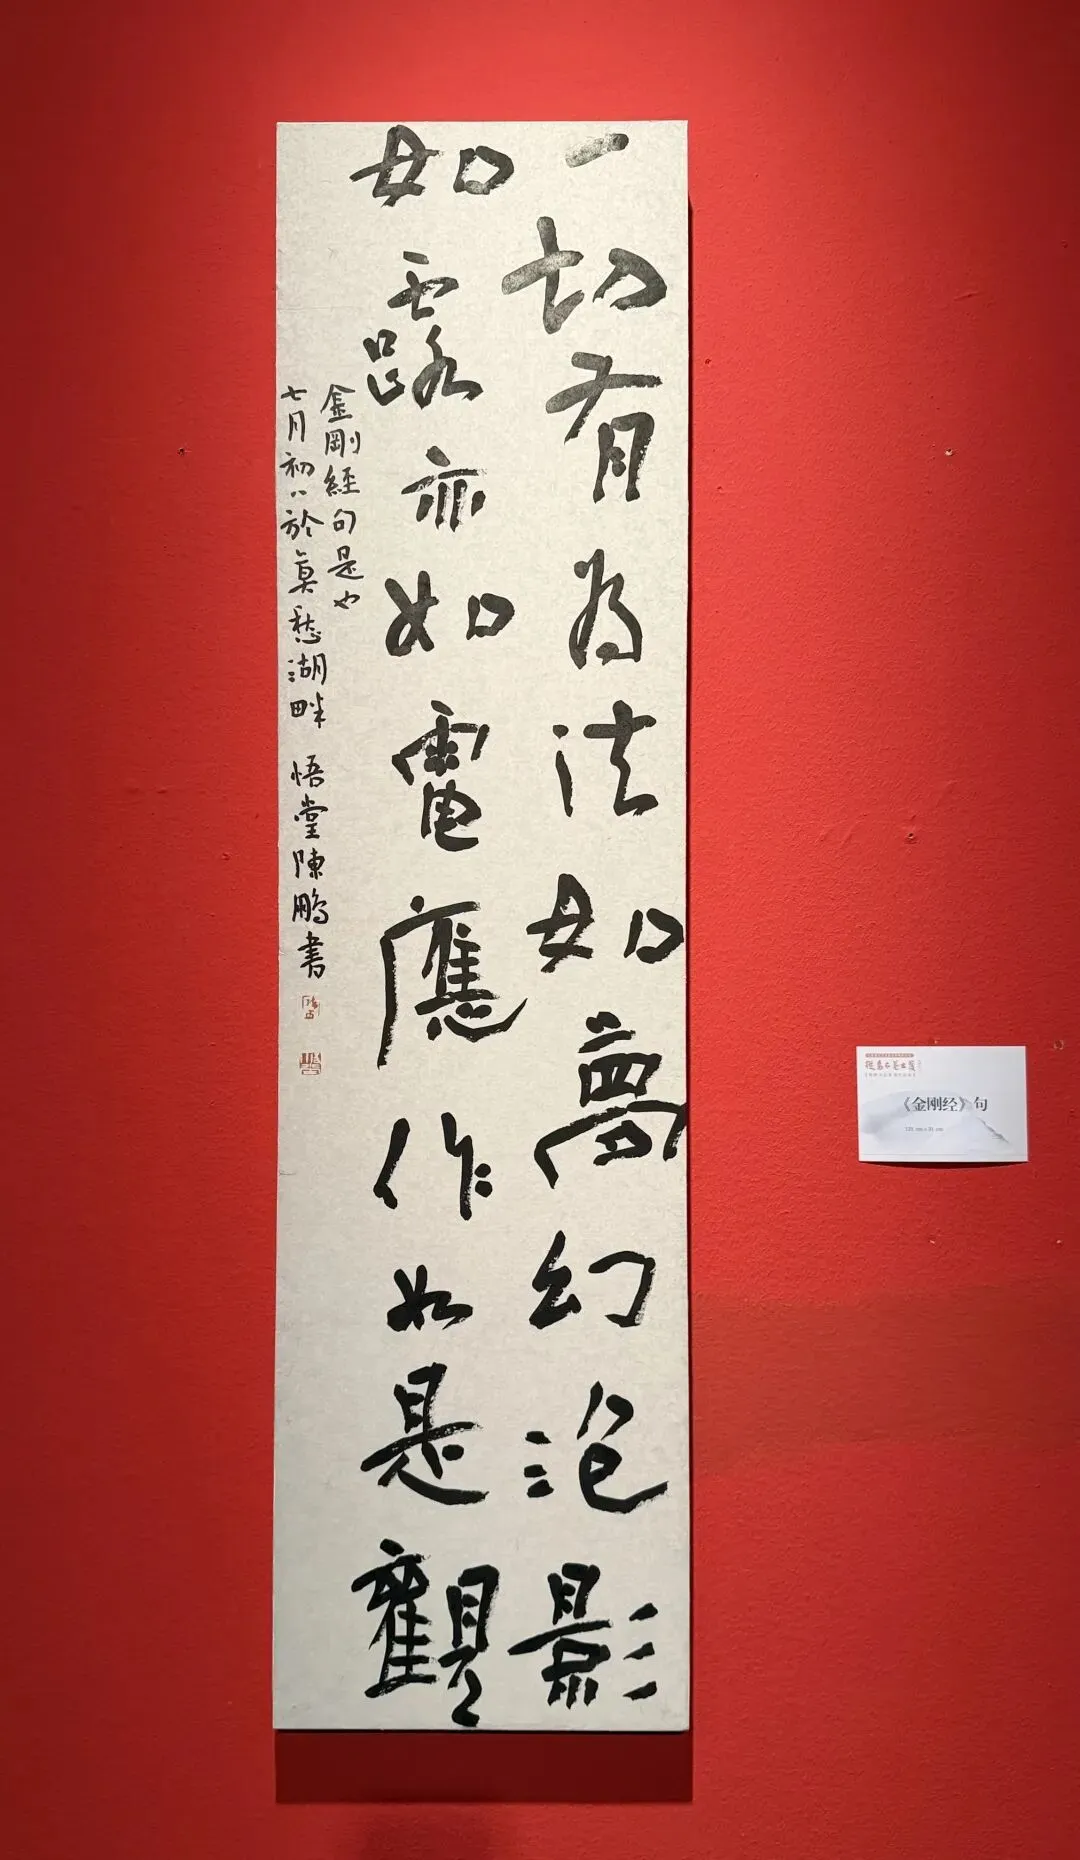 一切有為法如夢幻泡影
如露亦如電應作如是觀
金剛經句是也
七月初八於莫愁湖畔 悟堂陳鵬書
《金刚经》句